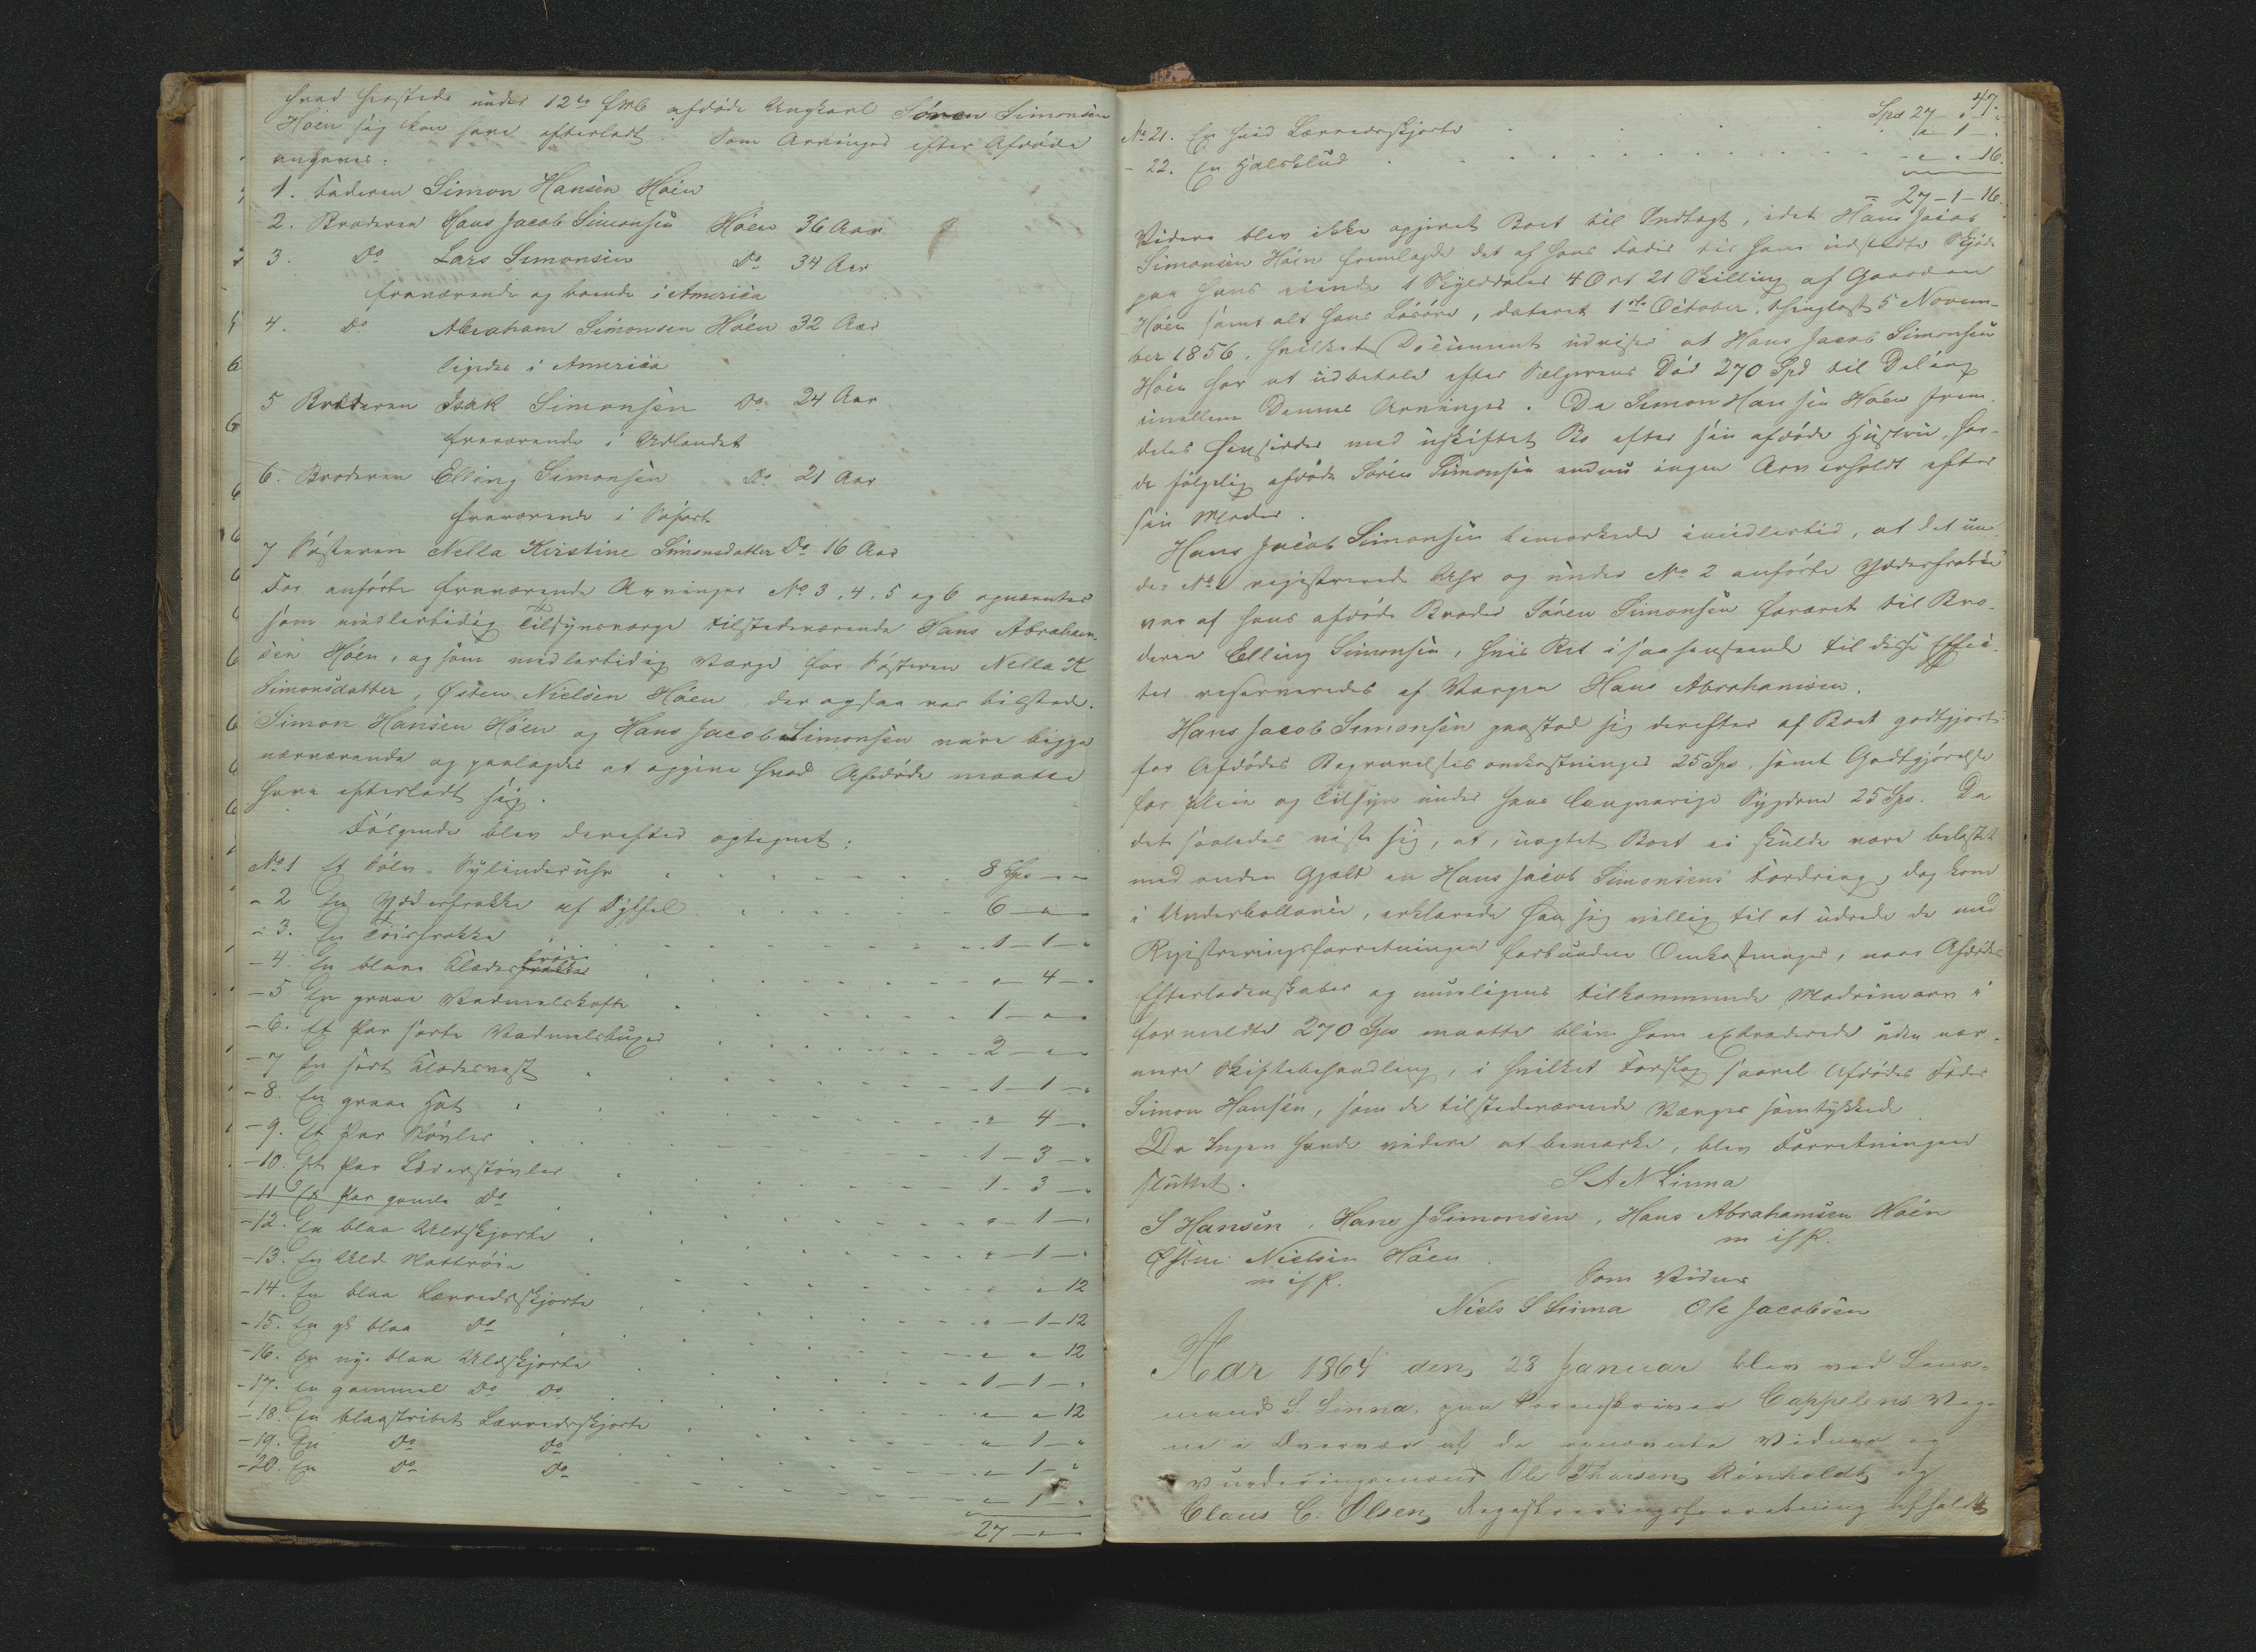 hvad herstede under 12te f. M. afdøde Ungkarl Sören Simonsen
Hoen sig kan have efterladt. Som Arvinger efter Afdøde
angaves:
1. Faderen Simon Hansen Höen
2. Broderen Hans Jacob Simonsen Höen 36 Aar
3. Do Lars Simonsen Do 34 Aar
fraværende og boende i America
4. Do Abraham Simonsen Höen 32 Aar
ligedes i America
5 Broderen Isak Simonsen Do 24 Aar
fraværende i Udlandet
6. Broderen Elling Simonsen Do 21 Aar
fraværende i Søfart
7 Søsteren Nella Kirstine Simonsdatter Do 16 Aar
For anførte fraværende Arvinger No 3, 4, 5 og 6 opnævntes
som midlertidig Tilsynsværge tilstedeværende Hans Abraham-
sen Höen, og som midlertidig Værge for Søsteren Nella K
Simonsdatter, Østen Nielsen Höen, der ogsaa var tilstede.
Simon Hansen Höen og Hans Jacob Simonsen vare begge
nærværende og paalagdes at opgive hvad Afdøde maatte
have efterladt sig.
Følgende blev derefter optegnet:
No 1 Et Sölv-Sylinderuhr 8 Spd - -
- 2 En Yderfrakke af Dyffel 6 - -
- 3. En Töisfrakke 1 - 1 -
- 4. En blaae Klædes frakke tröie - 4 -
- 5 En graae Vadmelskofte 1 - -
- 6. Et Par sorte Vadmelsbuxer 2 - -
- 7 En sort Klædesvest 1 - 1 -
- 8. En graae Hat - 4 -
- 9. Et Par Støvler 1 - 3 -
- 10. Et Par Læderstøvler 1 - 3 -
- 11 Et Par gamle Do
- 12. En blaa Uldskjorte - 1 -
- 13. En Uld Nattröie - 1 -
- 14. En blaa Lærredsskjorte - - 12
- 15. En gl blaa Do - 1 - 12
- 16. En nye blaa Uldskjorte - - 12
- 17. En gammel Do Do 1 - 1 -
- 18. En blaastribet Lærredsskjorte - - 12
- 19. En Do Do - 1 -
- 20. En Do Do - 1 -
- 1 -
27 - -
47.
Spd 27 - -
No 21. En hvid Lærredsskjorte - 1 -
- 22. En Halsklud - - 16.
= 27 - 1 - 16.
Videre blev ikke opgivet Boet til Indtægt, idet Hans Jacob
Simonsen Höen fremlagde det af hans Fader til ham udstedte Skjøde
paa hans eiende 1 Skylddaler 4 Ort 21 Skilling af Gaarden
Höen samt alt hans Løsøre, dateret 1ste October, thinglæst 5 Novem-
ber 1856. hvilket Document udviser at Hans Jacob Simonsen
Höen har at udbetale efter Sælgerens Död 270 Spd til Deling
imellem Dennes Arvinger. Da Simon Hansen Höen frem-
deles hensidder med uskiftet Bo efter sin afdøde Hustru, hav-
de følgelig afdøde Sören Simonsen endnu ingen Arv erholdt efter
sin Moder.
Hans Jacob Simonsen bemærkede imidlertid, at det un-
der No 1 registrerede Uhr og under No 2 anførte Yderfrakke
var af hans afdøde Broder Sören Simonsen foræret til Bro-
deren Elling Simonsen, hvis Ret i saa henseende til disse Effec-
ter reserveredes af Værgen Hans Abrahamsen.
Hans Jacob Simonsen paastod sig derefter af Boet godtgjort
for Afdødes Begravelses omkostninger 25 Spd, samt Godtgjørelse
for Pleie og Tilsyn under hans langvarige Sygdom 25 Spd. Da
det saaledes viste sig, at, uagtet Boet ei skulde være belastet
med anden Gjæld en Hans Jacob Simonsens Fordring, dog kom
i Underballance, erklærede han sig villig til at udrede de med
Registreringsforretningen forbundne Omkostninger, naar Afdødes
Efterladenskaber og muligens tilkommende Mødrenearv i
formeldte 270 Spd maatte blive ham extraderede uden nær-
mere Skiftebehandling, i hvilket Forslag saavel Afdødes Fader
Simon Hansen, som de tilstedeværende Værger samtykkede.
Da Ingen havde videre at bemærke, blev Forretningen
sluttet.
S A N Linna
S Hansen, Hans J Simonsen, Hans Abrahamsen Höen
m i/h P.
Østen Nielsen Höen
m i/h P.
Som Vidner
Niels S Linna Ole Jacobsen
Aar 1864 den 28 Januar blev ved Lens-
mand S. Linna. paa Sorenskriver Cappelens Veg-
ne i Overvær af de opnævnte Vidner og
Vurderingsmænd Ole Thorsen Rönholdt og
Claus C. Olsen Registreringsforretning afholdt